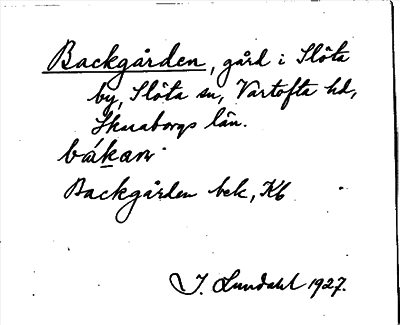 Backgården, gård i Slöta
by, Slöta sn, Vartofta hd,
Skaraborgs län.
bákan
Backgården bek, Kb
I. Lundahl 1927.